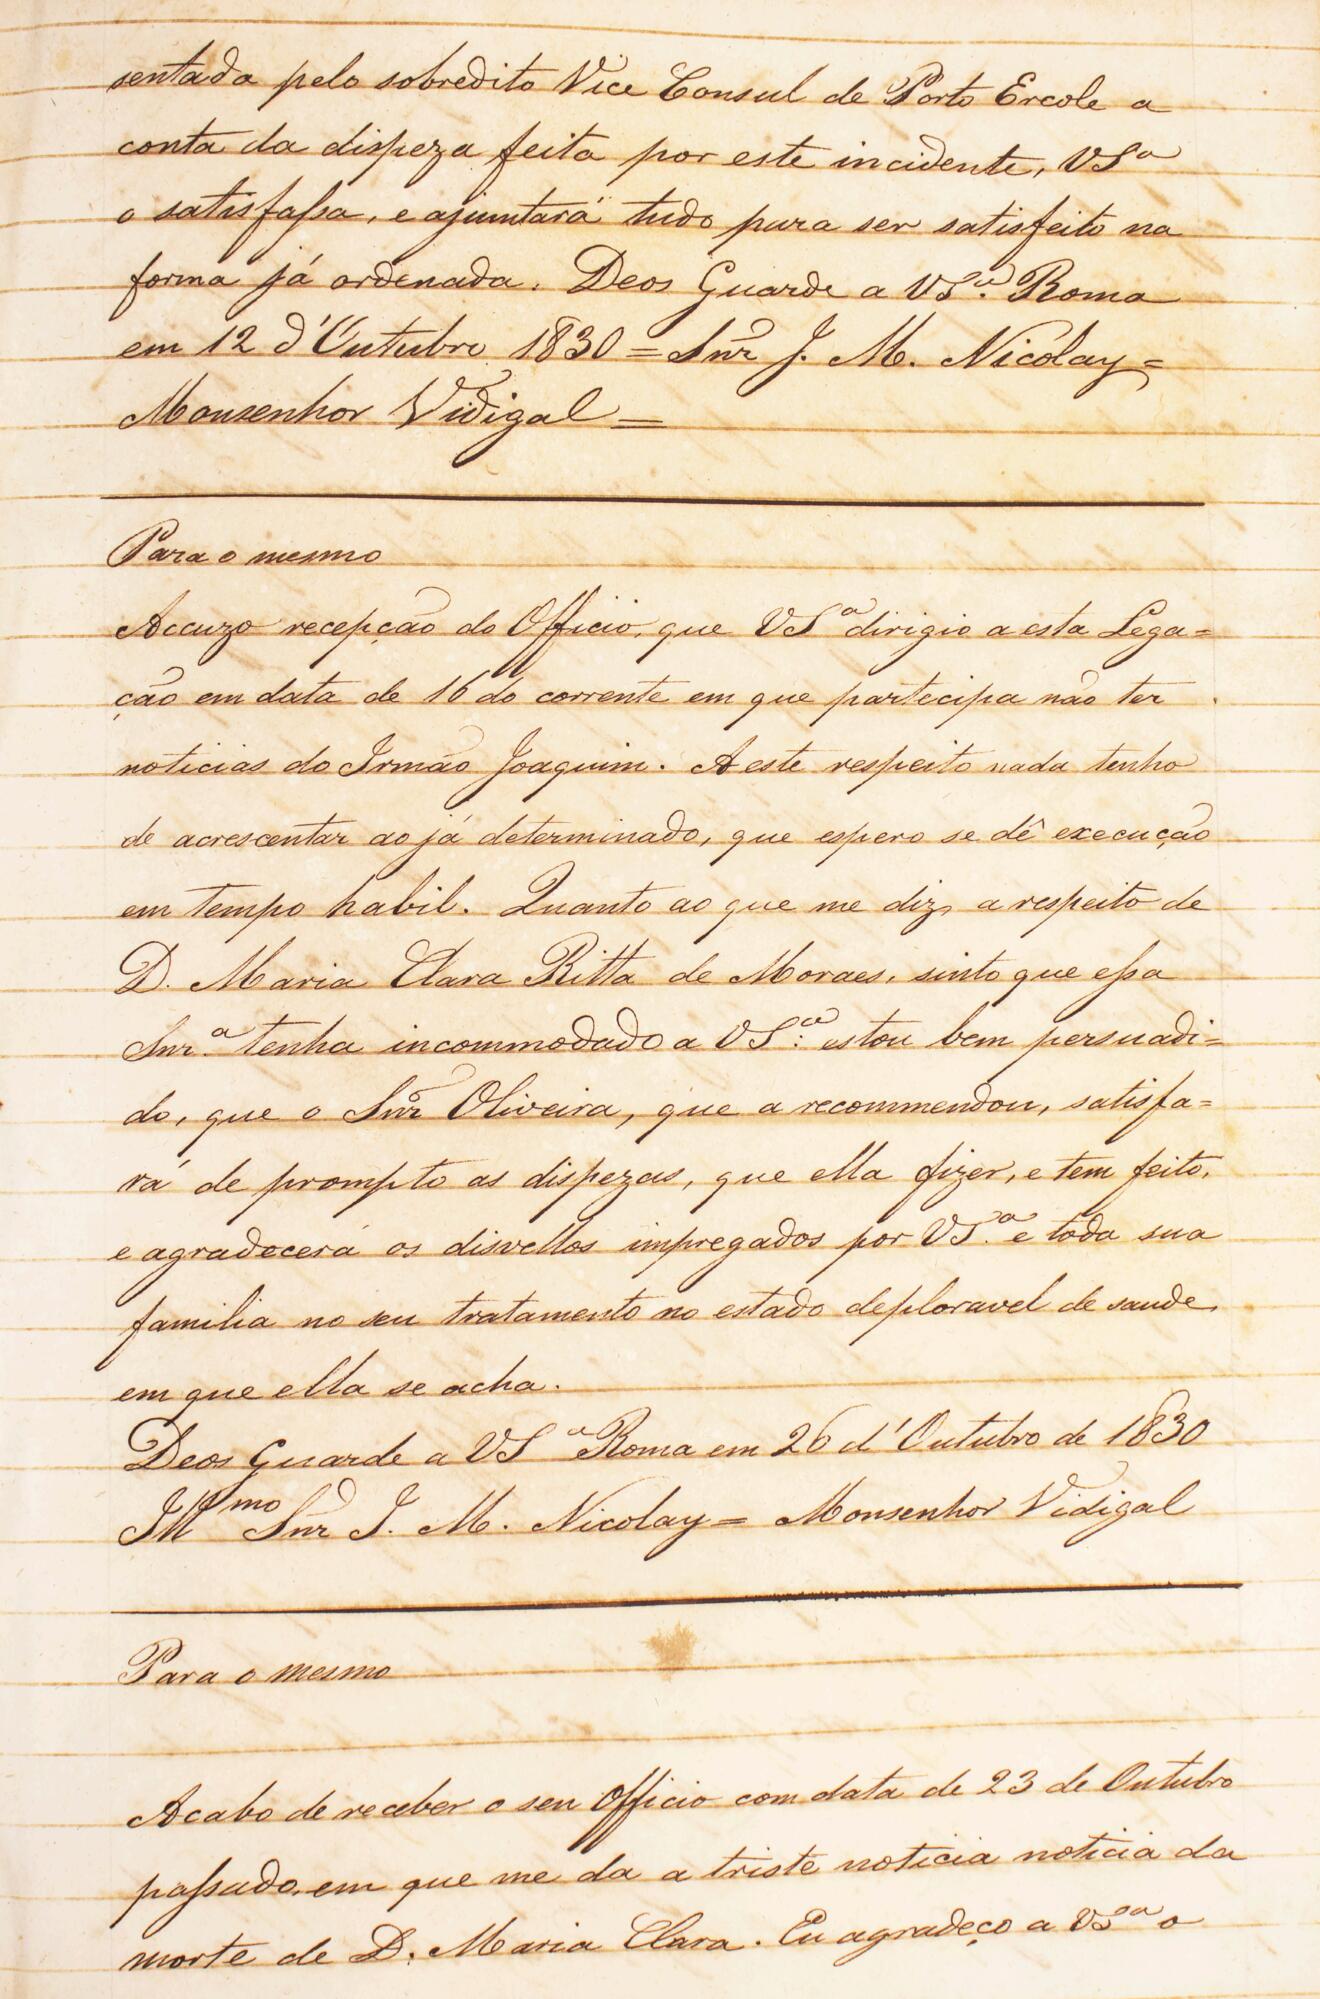 sentada pelo sobredito Vice Consul de Porto Ercole a
conta da dispeza feita por este incidente, VSª
o satisfassa, e ajuntará tudo para ser satisfeito na
forma já ordenada. Deos Guarde a VSª. Roma
em 12 d'Outubro 1830 = Snr J. M. Nicolay =
Monsenhor Vidigal =
Para o mesmo
Accuzo recepção do Officio, que VSª dirigio a esta Lega=
ção em data de 16 do corrente em que partecipa não ter
noticias do Irmão Joaquim. A este respeito nada tenho
de acrescentar ao já determinado, que espero se dê execução
em tempo habil. Quanto ao que me diz, a respeito de
D. Maria Clara Ritta de Moraes, sinto que essa
Snr.ª tenha incommodado a VS.ª estou bem persuadi=
do, que o Snr Oliveira, que a recommendou, satisfa=
rá de prompto as dispezas, que ella fizer, e tem feito,
e agradecerá os disvellos impregados por VS.ª e toda sua
familia no seu tratamento no estado deploravel de saude,
em que ella se acha.
Deos Guarde a VSª Roma em 26 d'Outubro de 1830
Illmo Snr J. M. Nicolay = Monsenhor Vidigal
Para o mesmo
Acabo de receber o seu Officio com data de 23 de Outubro
passado, em que me da a triste noticia noticia da
morte de D. Maria Clara. Eu agradeço a VSª o